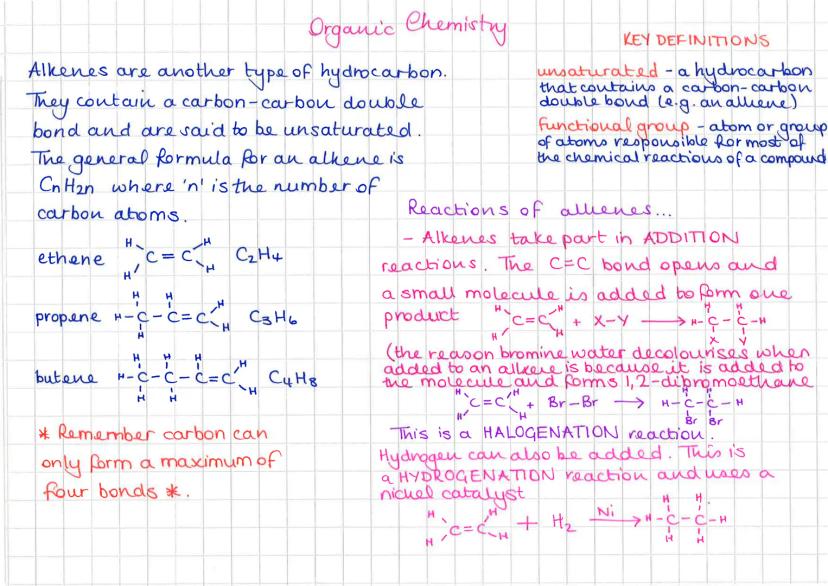 Organic Chemistry
Alkenes are another type of hydrocarbon.
They contain a carbon-carbon double
bond and are said to be unsaturated.
The general formula for an alkene is
CnH2n where 'n' is the number of
carbon atoms.
ethene
H H
C = C
H H
C2H4
propene
H H
H - C - C = C
H H H
C3H6
butene
H H H
H - C - C - C = C
H H H H
C4H8
* Remember carbon can
only form a maximum of
four bonds *.
KEY DEFINITIONS
unsaturated - a hydrocarbon
that contains a carbon-carbon
double bond (e.g. an alkene)
functional group - atom or group
of atoms responsible for most of
the chemical reactions of a compound
Reactions of alkenes...
- Alkenes take part in ADDITION
reactions. The C=C bond opens and
a small molecule is added to form one
product
H H H H
C = C + X-Y → H - C - C - H
H H X Y
(the reason bromine water decolourises when
added to an alkene is because it is added to
the molecule and forms 1,2-dibromoethane
H H H H
C = C + Br-Br → H - C - C - H
H H Br Br
This is a HALOGENATION reaction.
Hydrogen can also be added. This is
a HYDROGENATION reaction and uses a
nickel catalyst
H H Ni H H
C = C + H2 → H - C - C - H
H H H H